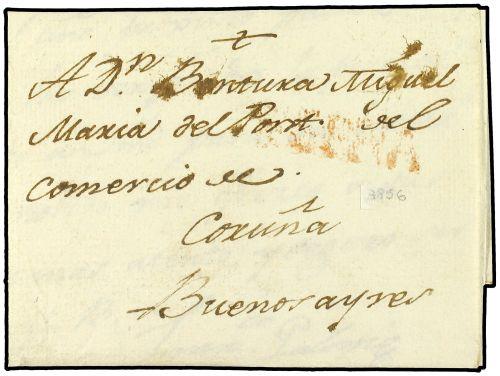 A Dn. Bentura Miguel
Maria del Pont. del
comercio de.
3856
Coruña
Buenos ayres